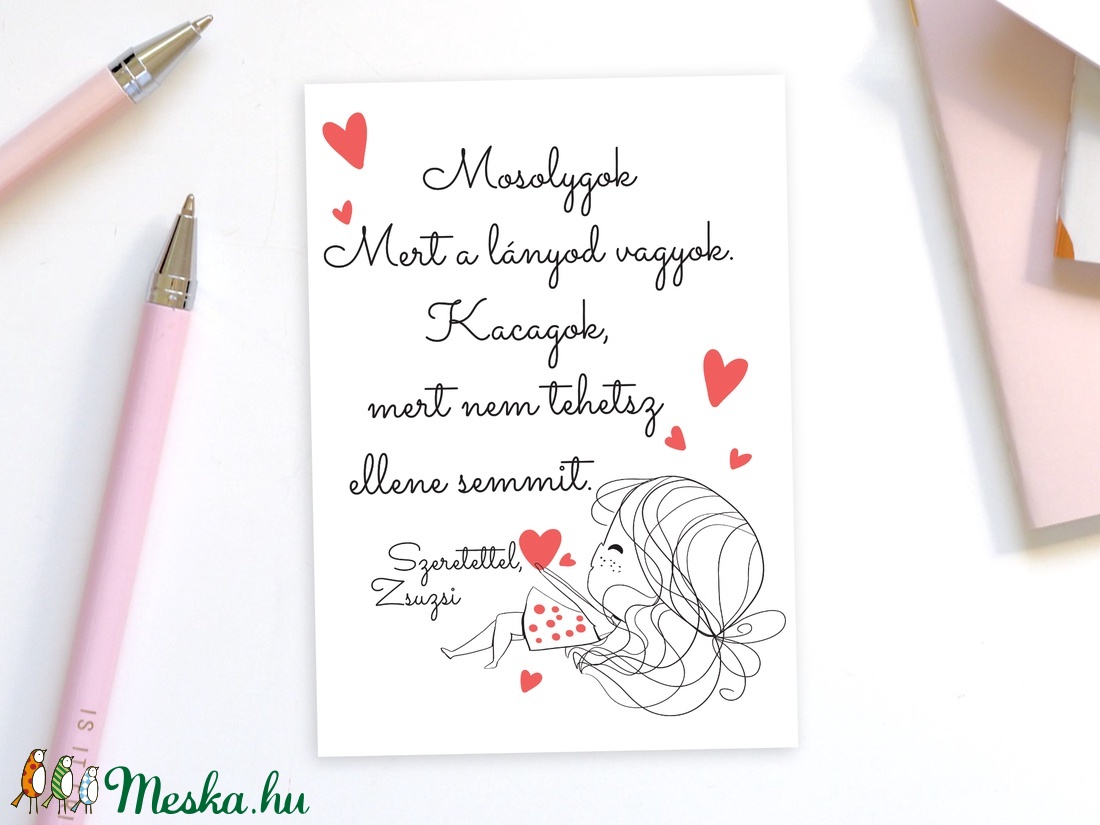 Mosolygok
Mert a lányod vagyok.
Kacagok,
mert nem tehetsz
ellene semmit.
Szeretettel,
Zsuzsi
IS IT
Meska.hu